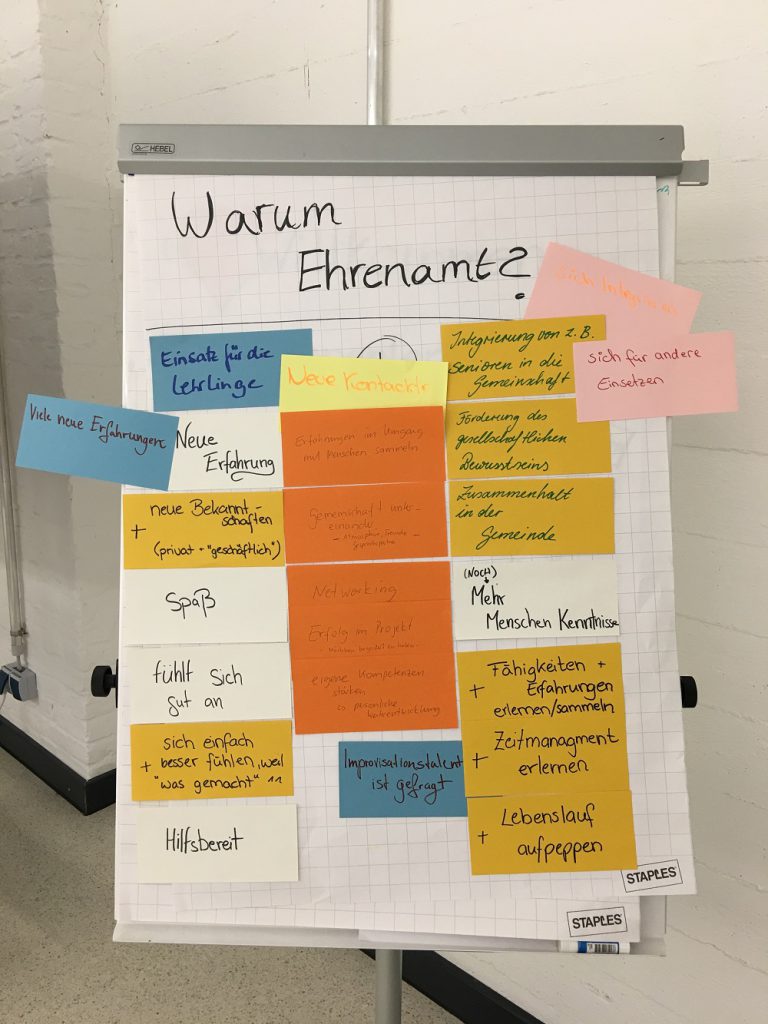 HEBEL
Warum
Ehrenamt?
Sich
Einsatz für die
Lehrlinge
Neue Kontackte
Integrierung von z.B.
Senioren in die
Gemeinschaft
sich für andere
Einsetzen
Viele neue Erfahrungen
Neue
Erfahrung
Erfahrungen im Umgang
mit Menschen sammeln
Förderung des
gesellschaftlichen
Bewusstseins
+ neue Bekannt-
schaften
(privat + "geschäftlich")
Gemeinschaft unter-
einander
- Atmosphäre, Freunde
Zusammenhalt
in der
Gemeinde
Spaß
Networking
Erfolg im Projekt
(NOCH)
Mehr
Menschen Kenntnisse
fühlt sich
gut an
eigene Kompetenzen
stärken
persönliche
Weiterentwicklung
+ Fähigkeiten +
Erfahrungen
erlernen/sammeln
sich einfach
+ besser fühlen, weil
"was gemacht" ^^
Improvisationstalent
ist gefragt
+ Zeitmanagment
erlernen
Hilfsbereit
+ Lebenslauf
aufpeppen
STAPLES
STAPLES